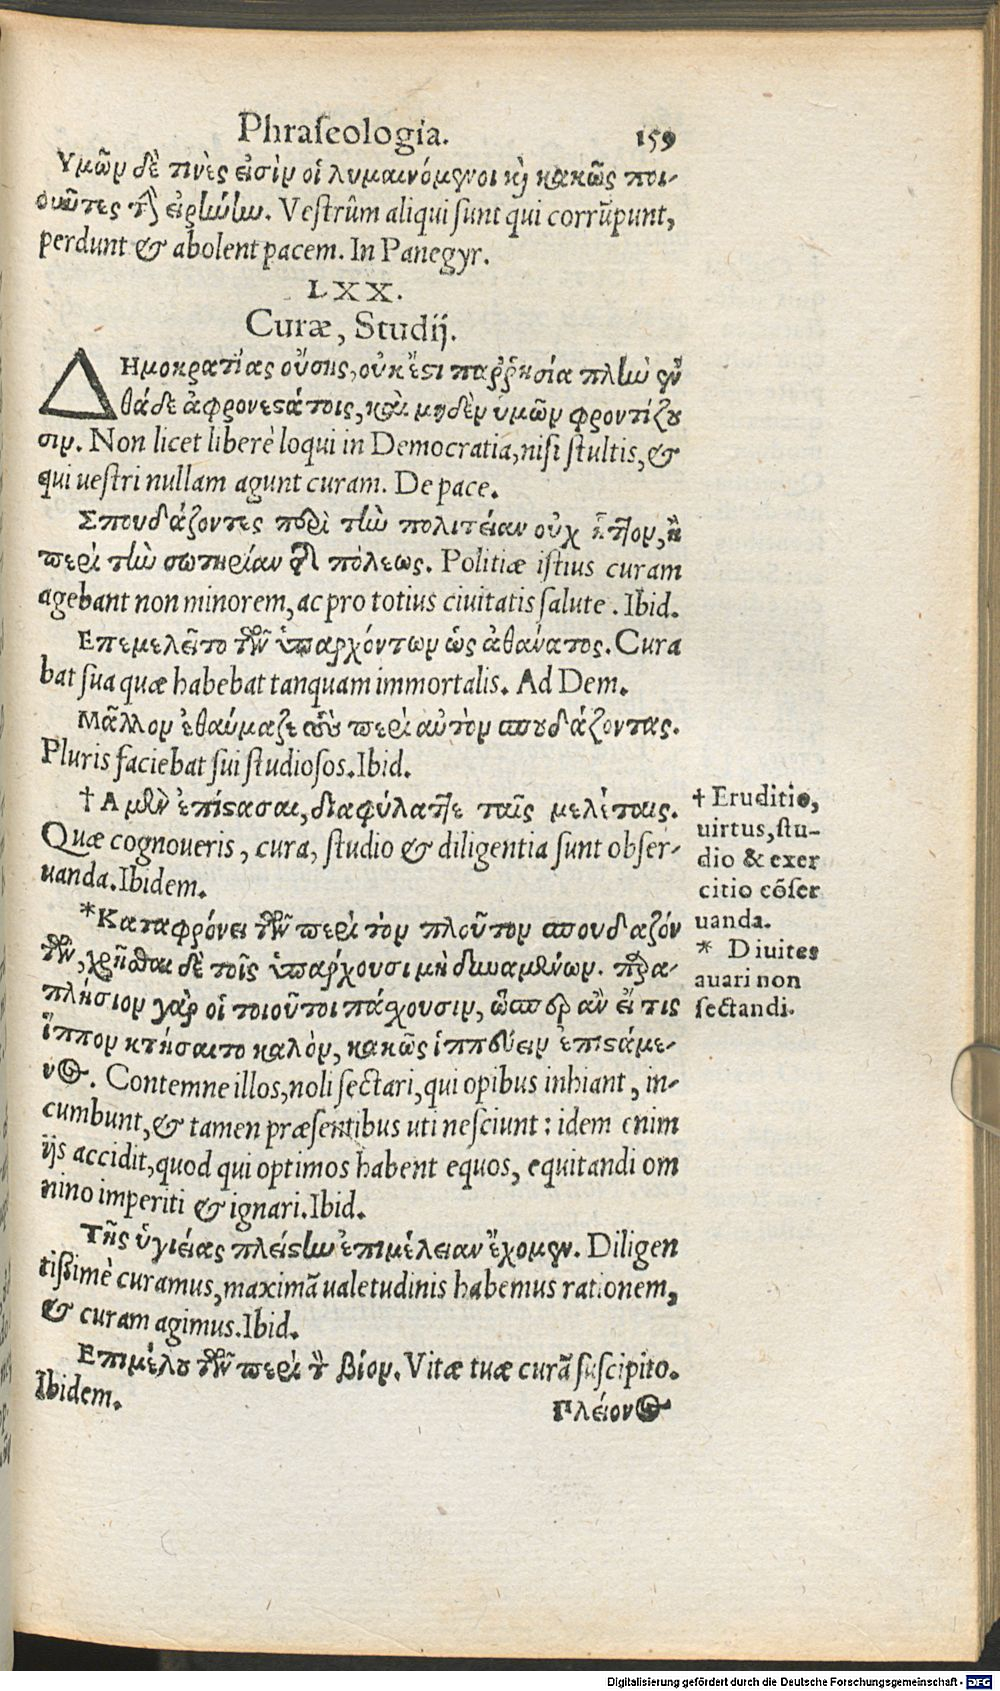 Phraseologia. 159
Υμῶν δὲ τινὲς εἰσὶν οἱ λυμαινόμενοι καὶ κακῶς ποι-
οῦντες τὴν εἰρήνην. Vestrûm aliqui sunt qui corrũpunt,
perdunt & abolent pacem. In Panegyr.
LXX.
Curæ, Studij.
ΔΗμοκρατίας οὔσης, οὐκ ἔστι παῤῥησία πλὴν ἐν
θάδε ἀφρονεστάτοις, καὶ μηδὲν ὑμῶν φροντίζου
σιν. Non licet liberè loqui in Democratia, nisi stultis, &
qui uestri nullam agunt curam. De pace.
Σπουδάζοντες περὶ τὴν πολιτείαν οὐχ ἧττον, ἢ
περὶ τὴν σωτηρίαν τῆς πόλεως. Politiæ istius curam
agebant non minorem, ac pro totius ciuitatis salute. Ibid.
Επεμελεῖτο τῶν ὑπαρχόντων ὡς ἀθανατος. Cura
bat sua quæ habebat tanquam immortalis. Ad Dem.
Μᾶλλον ἐθαύμαζε τοὺς περὶ αὐτὸν σπουδάζοντας.
Pluris faciebat sui studiosos. Ibid.
† Α μὲν ἐπίστασαι, διαφύλαττε ταῖς μελέταις.
Quæ cognoueris, cura, studio & diligentia sunt obser-
uanda. Ibidem.
† Eruditio,
uirtus, stu-
dio & exer
citio cõser
uanda.
*Καταφρόνει τῶν περὶ τὸν πλοῦτον σπουδαζόν
των, χρῆσθαι δὲ τοῖς ὑπάρχουσι μὴ δυναμένων. παρα-
πλήσιον γὰρ οἱ τοιοῦτοι πάσχουσιν, ὥσπερ ἂν εἴ τις
ἵππον κτήσαιτο καλὸν, κακῶς ἱππεύειν ἐπιστάμε-
νος. Contemne illos, noli sectari, qui opibus inhiant, in-
cumbunt, & tamen præsentibus uti nesciunt: idem enim
ijs accidit, quod qui optimos habent equos, equitandi om
nino imperiti & ignari. Ibid.
* Diuites
auari non
sectandi.
Τῆς ὑγιείας πλείστην ἐπιμέλειαν ἔχομεν. Diligen
tißimè curamus, maximã ualetudinis habemus rationem,
& curam agimus. Ibid.
Επιμέλου τῶν περὶ τὸν βίον. Vitæ tuæ curã suscipito.
Ibidem. Πλείονος
Digitalisierung gefördert durch die Deutsche Forschungsgemeinschaft - DFG